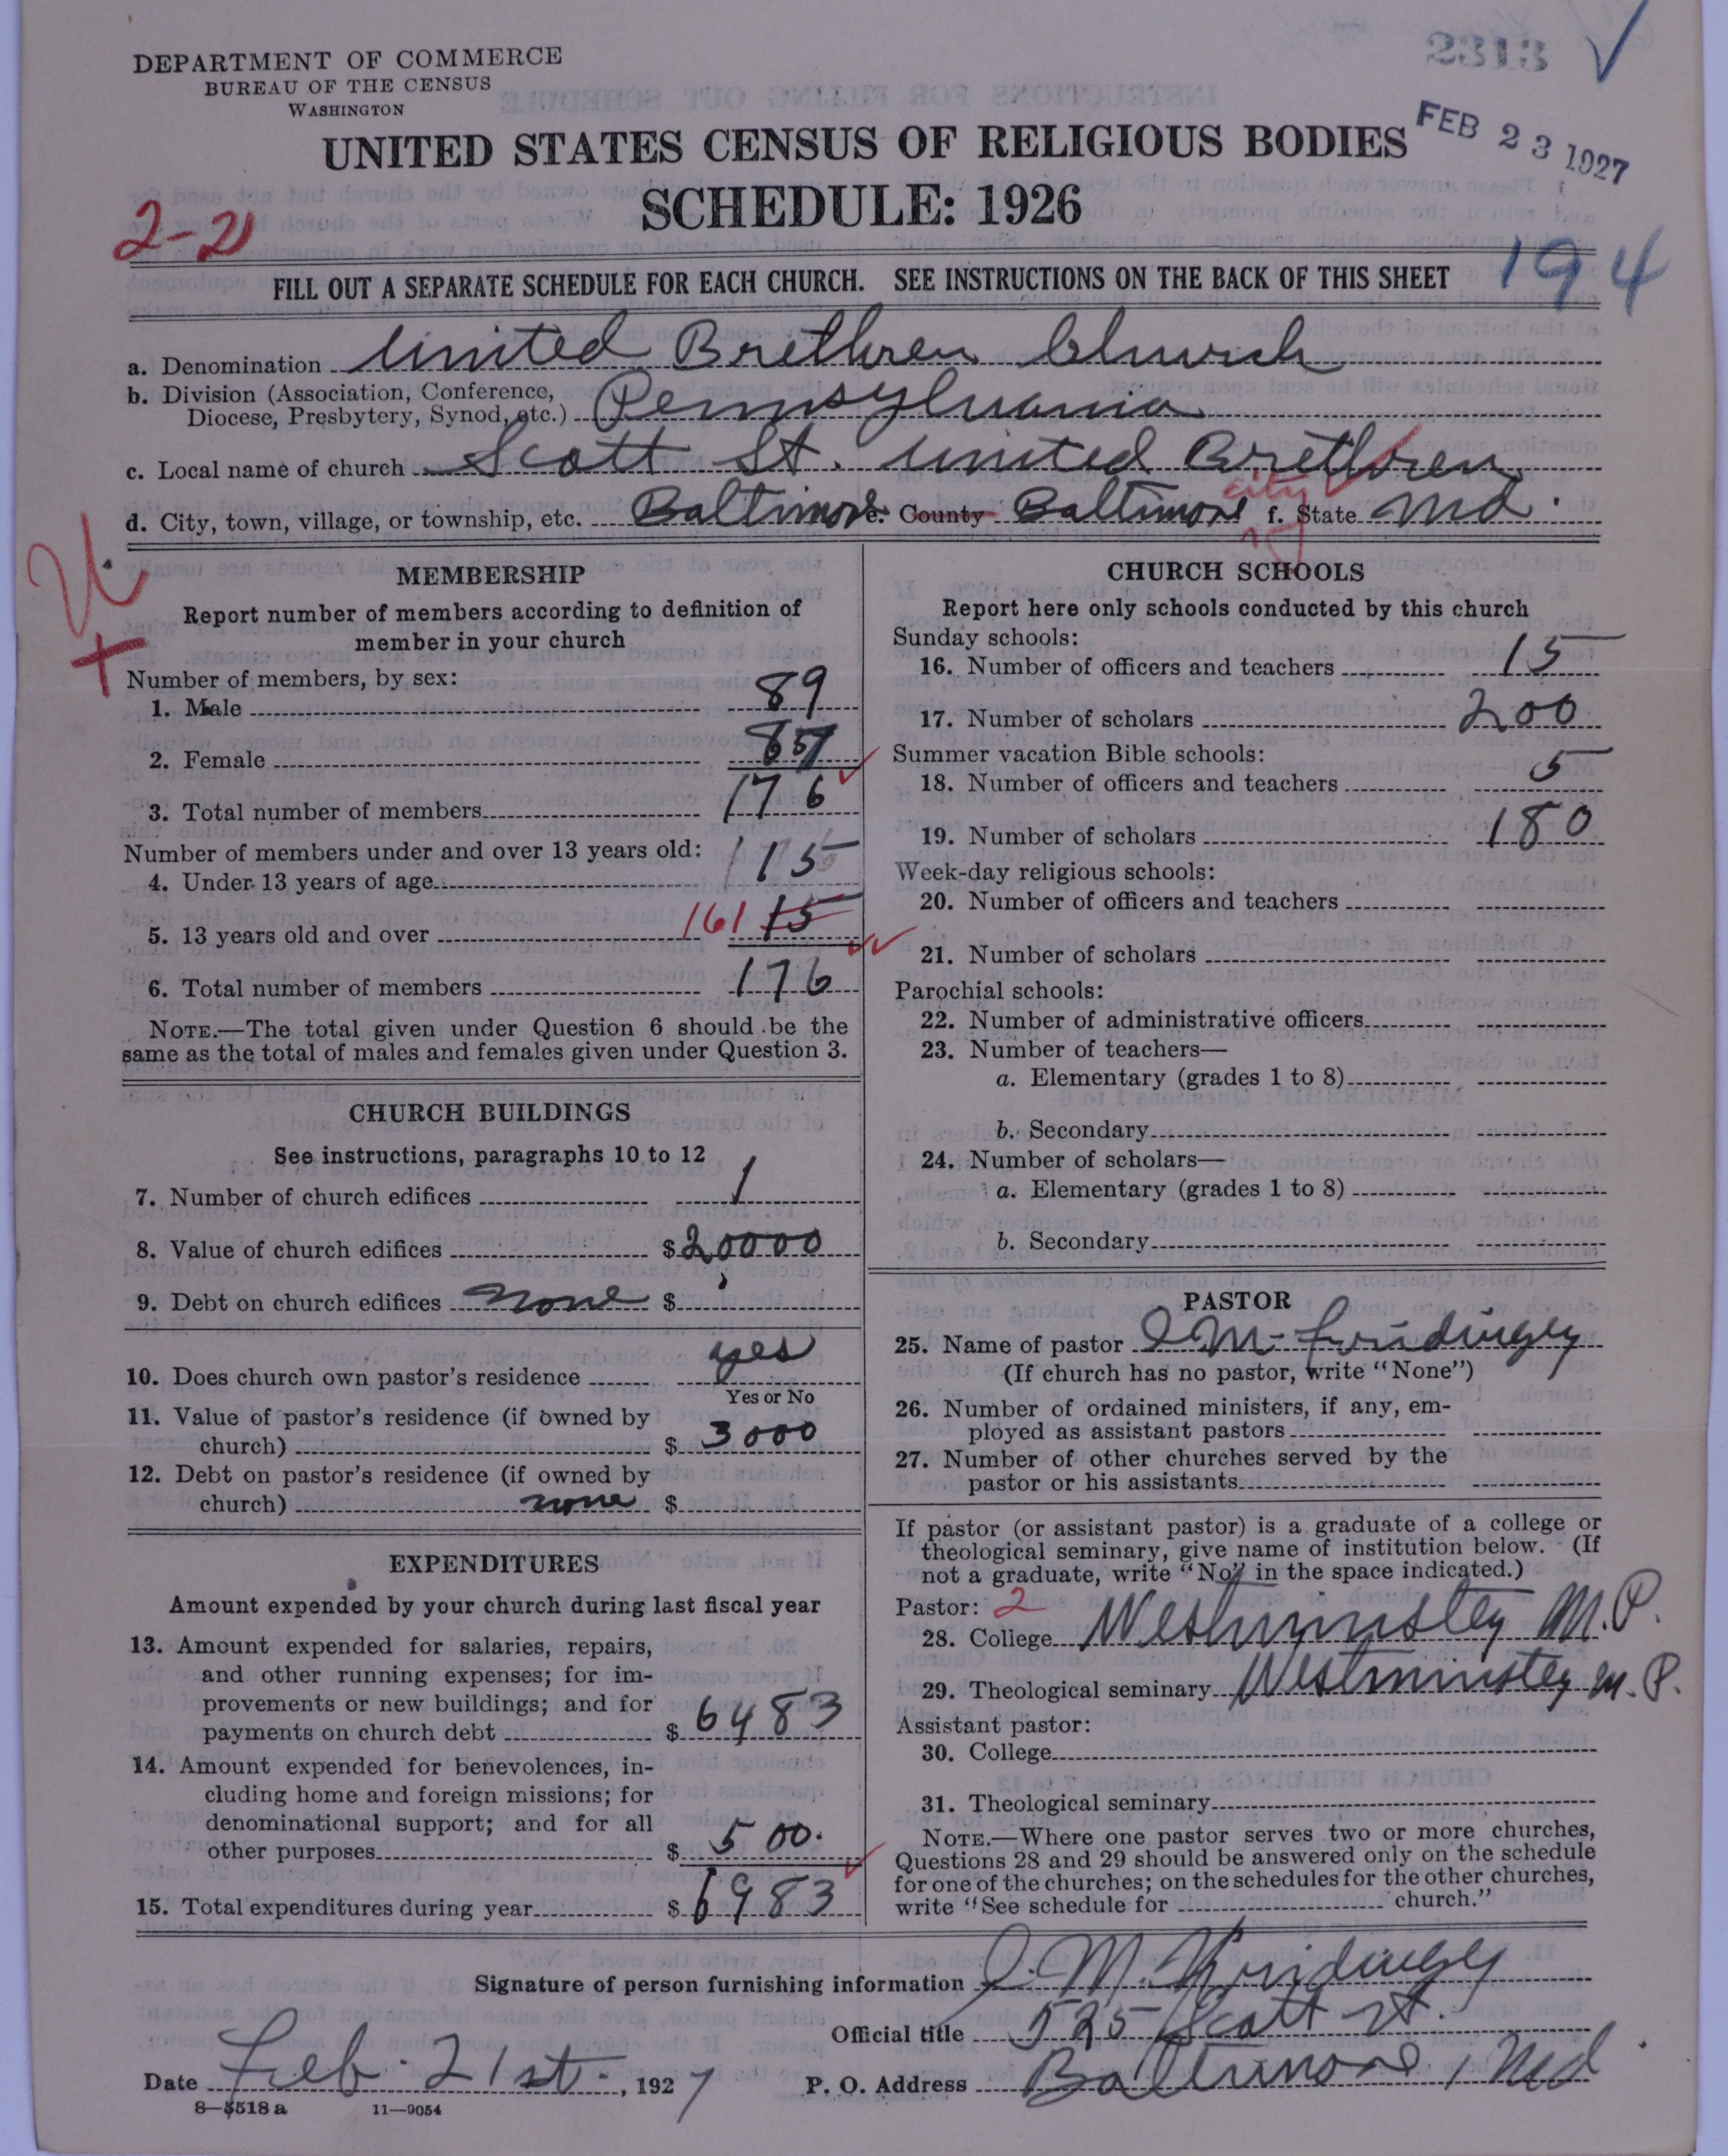 2313
DEPARTMENT OF COMMERCE
BUREAU OF THE CENSUS
WASHINGTON
UNITED STATES CENSUS OF RELIGIOUS BODIES
FEB 23 1927
SCHEDULE: 1926
2-21
194
FILL OUT A SEPARATE SCHEDULE FOR EACH CHURCH. SEE INSTRUCTIONS ON THE BACK OF THIS SHEET
a. Denomination United Brethren Church
b. Division (Association, Conference,
Diocese, Presbytery, Synod, etc.) Pennsylvania
c. Local name of church Scott St. United Brethren
d. City, town, village, or township, etc. Baltimore e. County Baltimore city f. State Md.
MEMBERSHIP
Report number of members according to definition of
member in your church
Number of members, by sex:
1. Male 89
2. Female 87
3. Total number of members 176
Number of members under and over 13 years old:
4. Under 13 years of age 15
5. 13 years old and over 161 15
6. Total number of members 176
NOTE.—The total given under Question 6 should be the
same as the total of males and females given under Question 3.
CHURCH BUILDINGS
See instructions, paragraphs 10 to 12
7. Number of church edifices 1
8. Value of church edifices $20000
9. Debt on church edifices none $
10. Does church own pastor's residence yes
Yes or No
11. Value of pastor's residence (if owned by
church) $ 3000
12. Debt on pastor's residence (if owned by
church) none $
EXPENDITURES
Amount expended by your church during last fiscal year
13. Amount expended for salaries, repairs,
and other running expenses; for im-
provements or new buildings; and for
payments on church debt $ 6483
14. Amount expended for benevolences, in-
cluding home and foreign missions; for
denominational support; and for all
other purposes $ 500.
15. Total expenditures during year $ 6983
CHURCH SCHOOLS
Report here only schools conducted by this church
Sunday schools:
16. Number of officers and teachers 15
17. Number of scholars 200
Summer vacation Bible schools:
18. Number of officers and teachers 5
19. Number of scholars 180
Week-day religious schools:
20. Number of officers and teachers
21. Number of scholars
Parochial schools:
22. Number of administrative officers
23. Number of teachers—
a. Elementary (grades 1 to 8)
b. Secondary
24. Number of scholars—
a. Elementary (grades 1 to 8)
b. Secondary
PASTOR
25. Name of pastor
(If church has no pastor, write "None")
26. Number of ordained ministers, if any, em-
ployed as assistant pastors
27. Number of other churches served by the
pastor or his assistants
If pastor (or assistant pastor) is a graduate of a college or
theological seminary, give name of institution below. (If
not a graduate, write "No" in the space indicated.)
Pastor: 2
28. College Westminster M.P.
29. Theological seminary Westminster M.P.
Assistant pastor:
30. College
31. Theological seminary
NOTE.—Where one pastor serves two or more churches,
Questions 28 and 29 should be answered only on the schedule
for one of the churches; on the schedules for the other churches,
write "See schedule for church."
Signature of person furnishing information
Official title 525 Scott St.
Date Feb. 21st., 1927 P. O. Address Baltimore, Md.
8—5518 a 11—9054